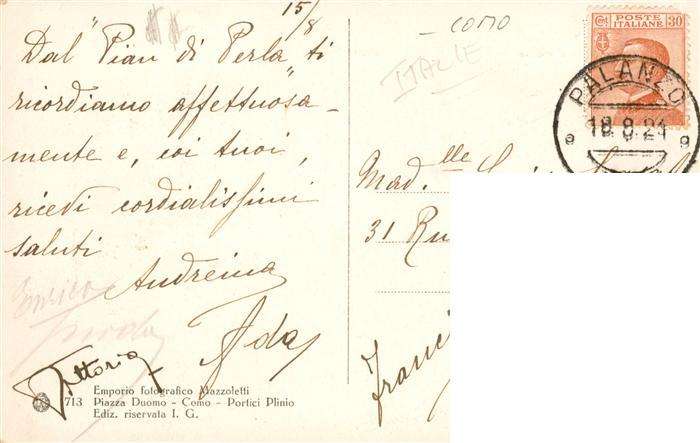 15/8
Dal "Pian di Perla" ti
ricordiamo affettuosa-
mente e, coi tuoi,
ricevi cordialissimi
saluti
Andreina
Enrico
Ada
Vittoria
713 Emporio fotografico Mazzoletti
Piazza Duomo - Como - Portici Plinio
Ediz. riservata I. G.
COMO
ITALIE
Cent. POSTE 30
ITALIANE
PALANZO
18.8.21
Mad.lle
31 Ru
Franci